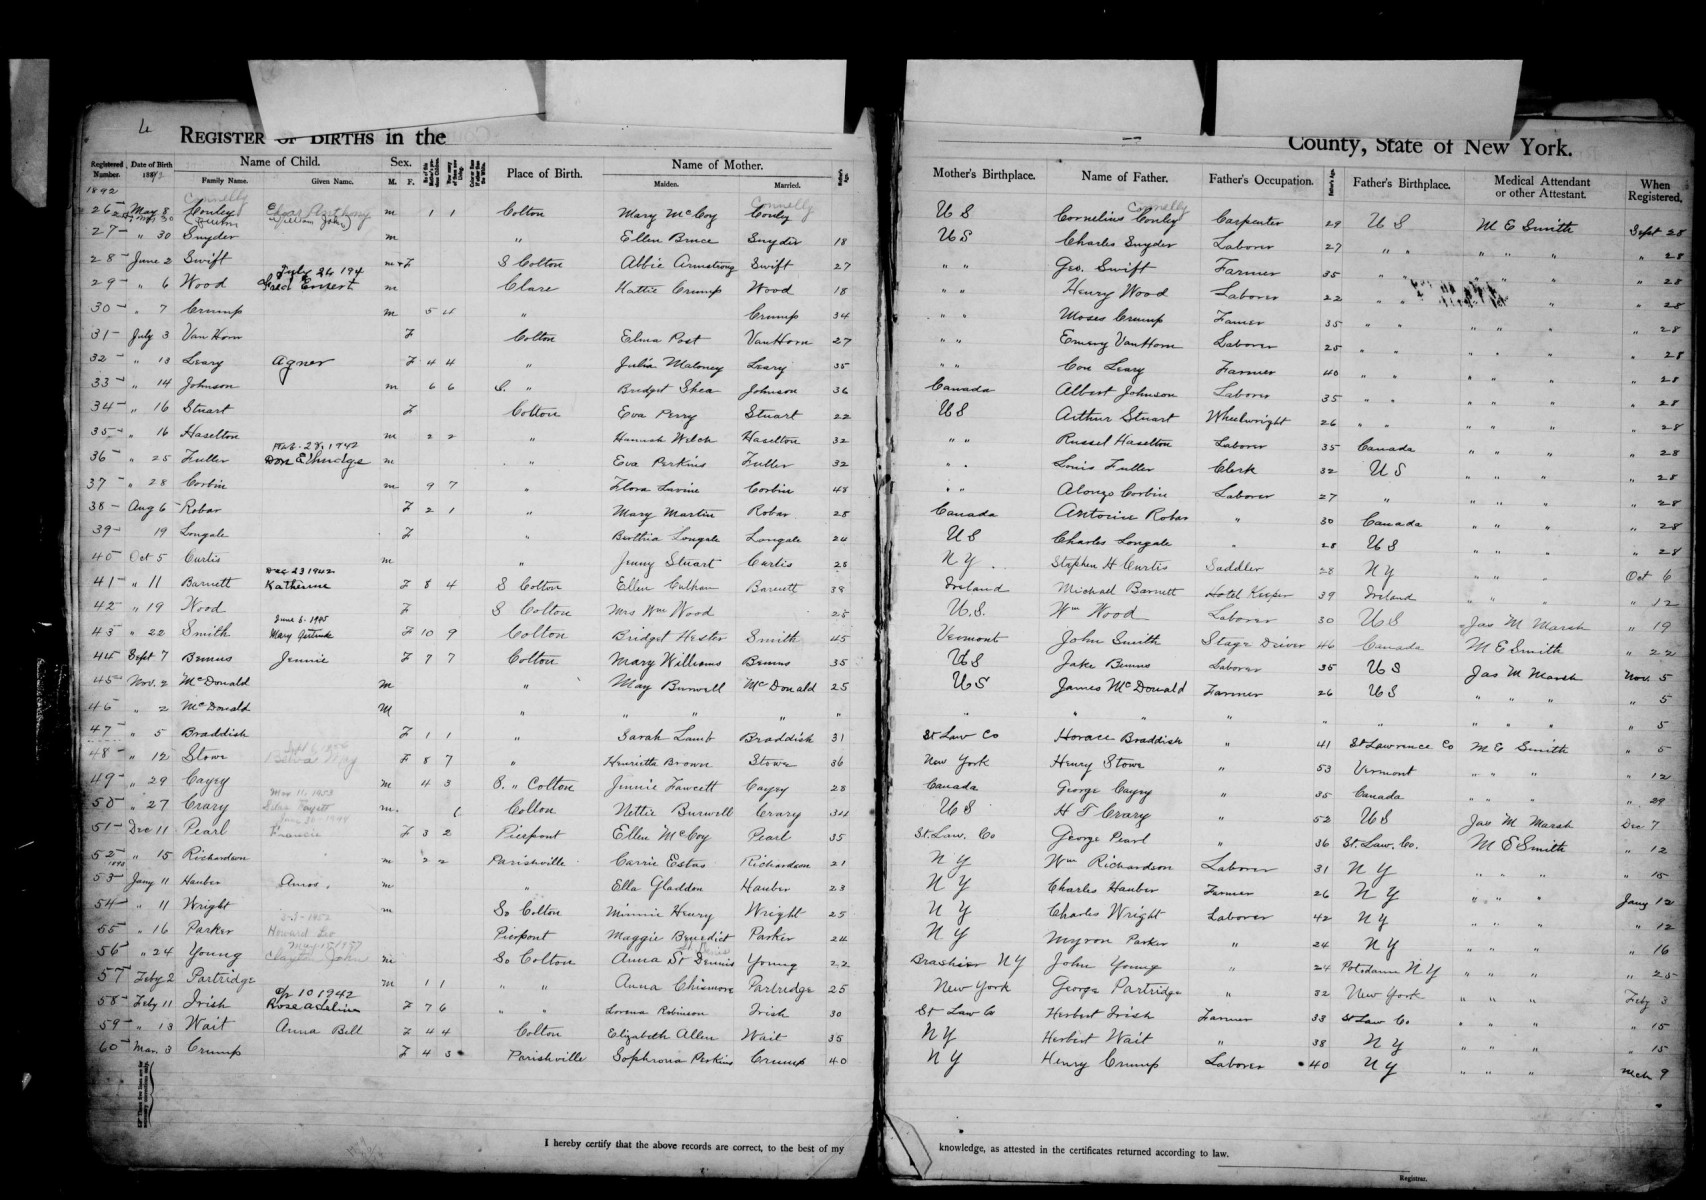 4
REGISTER OF BIRTHS in the County, State of New York.
Registered Number. Date of Birth 1892 Name of Child. Family Name. Given Name. Sex. M. F. Place of Birth. Name of Mother. Maiden. Married. Mother's Age. Mother's Birthplace. Name of Father. Father's Occupation. Father's Age. Father's Birthplace. Medical Attendant or other Attestant. When Registered.
1892
Connelly Connelly Connelly
26 May 8 Conley m 1 1 Colton Mary McCoy Conley U S Cornelius Conley Carpenter 29 U S M E Smith Sept 28
William John
27 " 30 Snyder m " Ellen Bruce Snyder 18 U S Charles Snyder Laborer 27 " " " " " " 28
28 June 2 Swift m & F S Colton Abbie Armstrong Swift 27 " " Geo. Swift Farmer 35 " 28
July 26 194
29 " 6 Wood Ernest m Clare Hattie Crump Wood 18 " " Henry Wood Laborer 22 " " " 28
30 " 7 Crump m 5 4 " Crump 34 " " Moses Crump Famer 35 " " " " " " 28
31 July 3 Van Horn F Colton Elma Post VanHorn 27 " " Emery VanHorn Laborer 25 " " " " " " 28
32 " 13 Leary Agner F 4 4 " Julia Maloney Leary 35 " " Con Leary Farmer 40 " " " " " " 28
33 " 14 Johnson m 6 6 S. " Bridget Shea Johnson 36 Canada Albert Johnson Labor 35 " " " " " " 28
34 " 16 Stuart F Colton Eva Perry Stuart 22 U S Arthur Stuart Wheelwright 26 " " " " " " 28
35 " 16 Haselton m 2 2 " Hannah Welch Haselton 32 " " Russel Haselton Laborer 35 Canada " " " " 28
Feb. 28, 1942
36 " 25 Fuller Don Ethridge m " Eva Perkins Fuller 32 " " Louis Fuller Clerk 32 U S " " " " 28
37 " 28 Corbin m 9 7 " Flora Lavine Corbin 48 " " Alonzo Corbin Laborer 27 " " " " " 28
38 Aug 6 Robar F 2 1 " Mary Martin Robar 28 Canada Antoine Robar " 30 Canada " " " " 28
39 19 Longale F " Berthia Longale Longale 24 U S Charles Longale " 28 U S " " " " 28
40 Oct 5 Curtis m " Jenny Stuart Curtis 28 N Y Stephen H Curtis Saddler 28 N Y " " " Oct 6
Dec 23 1942
41 " 11 Barnett Katherine F 8 4 S Colton Ellen Culhan Barnett 38 Ireland Michael Barnett Hotel Keeper 39 Ireland " " " " 12
42 " 19 Wood F S Colton Mrs Wm Wood 25 U.S. Wm Wood Laborer 30 U S Jas M Marsh " 19
June 6. 1945
43 " 22 Smith Mary Gertrude F 10 9 Colton Bridget Hester Smith 45 Vermont John Smith Stage Driver 46 Canada M E Smith " 22
44 Sept 7 Bemus Jennie F 7 7 Colton Mary Williams Bemus 35 U S Jake Bemus Laborer 35 U S Jas M Marsh Nov. 5
45 Nov. 2 McDonald m " May Burwell McDonald 25 U S James McDonald Farmer 26 U S " " " " 5
46 " 2 McDonald M " " " " " " " " " " " " " " 5
47 " 5 Braddish F 1 1 " Sarah Lamb Braddish 31 St Law Co Horace Braddish " 41 St Lawrence Co M E Smith " 5
48 " 12 Stowe May F 8 7 " Henrietta Brown Stowe 36 New York Henry Stowe " 53 Vermont " " " " 12
49 " 29 Cayey m 4 3 S. " Colton Jinnie Fawcett Cayey 28 Canada George Cayey " 35 Canada " " " " 29
Mar 11, 1953
50 " 27 Crary m. Colton Nettie Burwell Crary 34 U S H T Crary " 52 U S Jas M Marsh Dec 7
51 Dec 11 Pearl Francis F 3 2 Pierpont Ellen McCoy Pearl 35 St. Law. Co George Pearl " 36 St. Law. Co. M E Smith " 12
52 " 15 Richardson m 2 2 Parishville Carrie Estus Richardson 21 N Y Wm Richardson Laborer 31 N Y " " " " 15
1893
53 Jany 11 Hauber Amos. m " Ella Gladden Hauber 23 N Y Charles Hauber Farmer 26 N Y " " " Jany 12
54 " 11 Wright m So Colton Minnie Henry Wright 25 N Y Charles Wright Laborer 42 N Y " " " " 12
3-3-1952
55 " 16 Parker Howard Leo Pierpont Maggie Benedict Parker 24 N Y Myron Parker " 24 N Y " " " " 16
56 " 24 Young Clayton John m So Colton Anna St Dennis Young 22 Brashier N Y John Young " 24 Potsdam N Y " " " " 25
57 Feby 2 Partridge m 1 1 " " Anna Chismore Partridge 25 New York George Partridge " 32 New York " " " Feby 3
Ap 10 1942
58 Feby 11 Irish Rose Adeline F 7 6 " " Lorena Robinson Irish 30 St Law Co Herbert Irish Farmer 33 St Law Co " " " " 15
59 " 13 Wait Anna Bell F 4 4 Colton Elizabeth Allen Wait 35 N Y Herbert Wait " 38 N Y " " " " 15
60 Mar. 3 Crump F 4 3 Parishville Sophrona Perkins Crump 40 N Y Henry Crump Laborer 40 N Y " " " Mch 9
I hereby certify that the above records are correct, to the best of my knowledge, as attested in the certificates returned according to law.
Registrar.